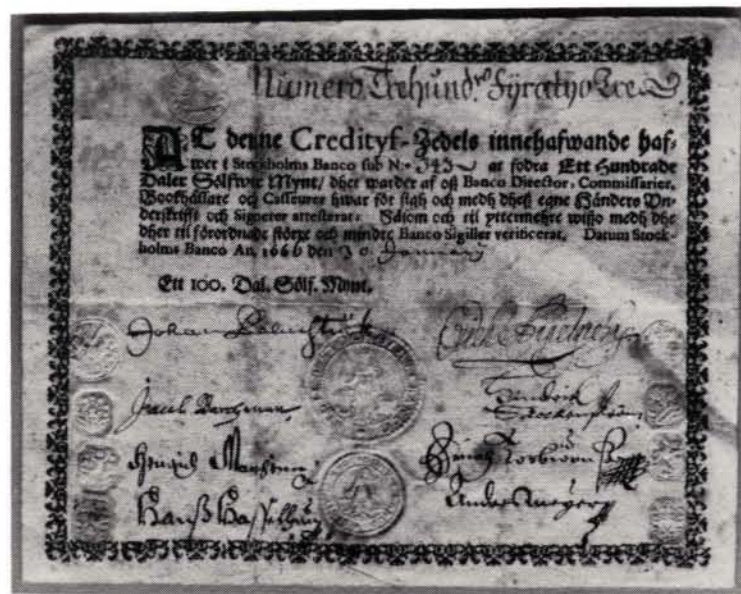 Numero Trehund. Fyratyo Tre
AT denne Credityf-Zedels innehafwande haf-
wer i Stockholms Banco sub N:o 343 at fodra Ett Hundrade
Daler Sölfwer Mynt/ dher warder af oß Banco Director, Commissarier,
Bookhållare och Casseurer hwar för sigh och medh dheß egne Händers Un-
derskrifft och Signeter attesterat. Såsom och til yttermehre wißo medh dhe
dher til förordnade större och mindre Banco Sigiller verificerat. Datum Stock-
holms Banco An. 1666 den 30. January
Ett 100. Dal. Sölf. Mynt.
Johan Palmstruk
Hanß Hasselhun
Anders Meyer